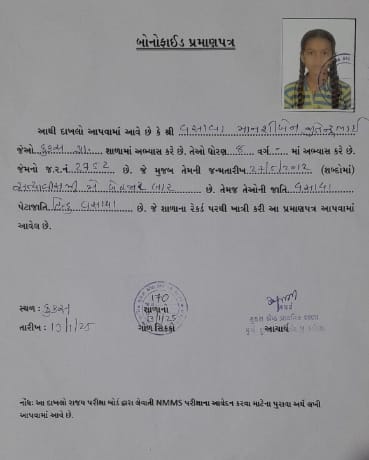 બોનોફાઈડ પ્રમાણપત્ર
આથી દાખલો આપવામાં આવે છે કે શ્રી વસાવા માનશીબેન જીતેન્દ્રભાઈ
જેઓ કુકસ પ્રા. શાળામાં અભ્યાસ કરે છે. તેઓ ધોરણ 8 વર્ગ - માં અભ્યાસ કરે છે.
જેમનો જ.ર.નં 2752 છે. જે મુજબ તેમની જન્મતારીખ (શબ્દોમાં)
બે હજાર બાર છે. તેમજ તેઓની જાતિ વસાવા
પેટાજાતિ હિન્દુ વસાવા છે. જે શાળાના રેકર્ડ પરથી ખાત્રી કરી આ પ્રમાણપત્ર આપવામાં
આવેલ છે.
સ્થળ : કુકસ
170
શાળાનો
તારીખ : 13/1/25
13/1/25
ગોળ સિક્કો
આચાર્ય
નોંધઃ આ દાખલો રાજ્ય પરીક્ષા બોર્ડ દ્વારા લેવાતી NMMS પરીક્ષાના આવેદન કરવા માટેના પુરાવા અર્થે લખી
આપવામાં આવે છે.